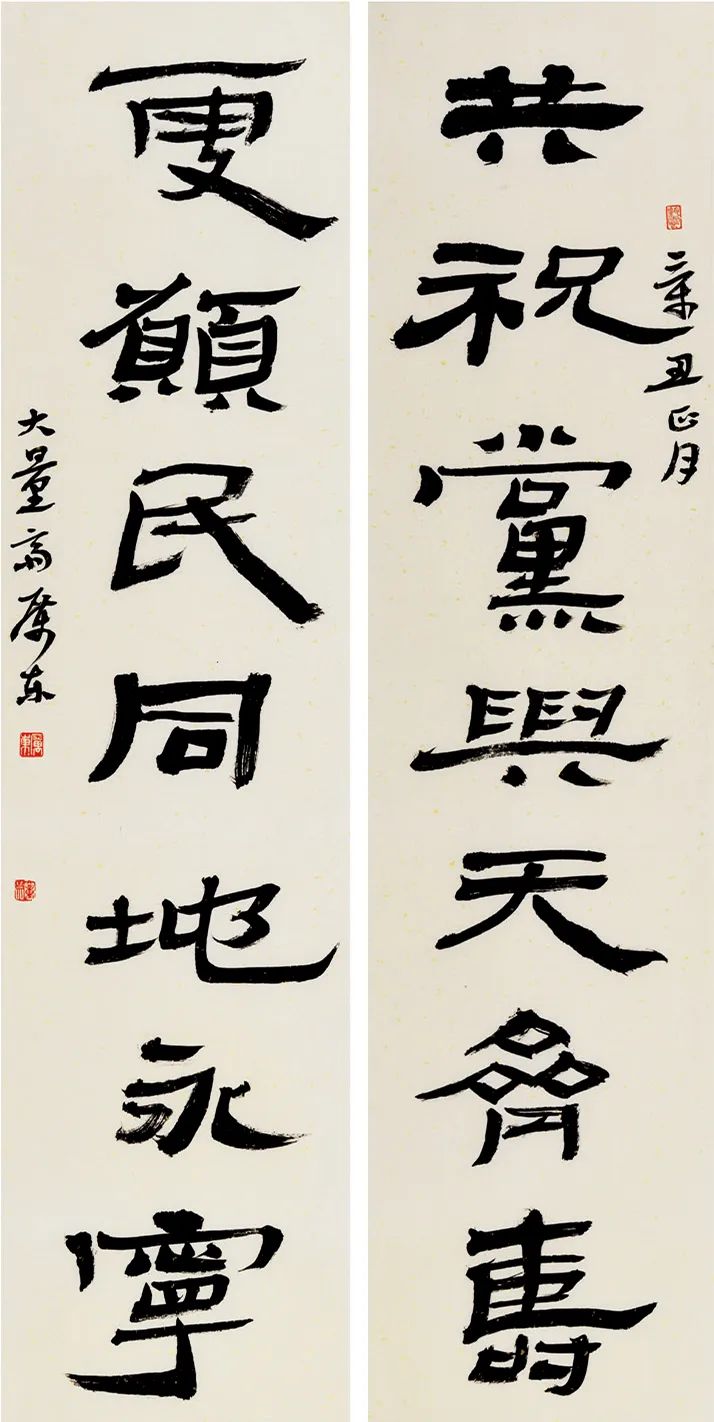 共祝黨與天齊壽
辛丑正月
更願民同地永寧
大量齋厲東